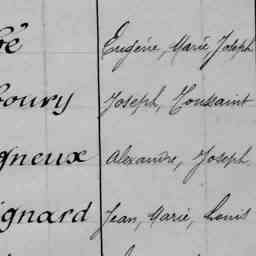 ré Eugène, Marie Joseph
boury Joseph, Toussaint
gneux Alexandre, Joseph
ignard Jean, Marie, Louis